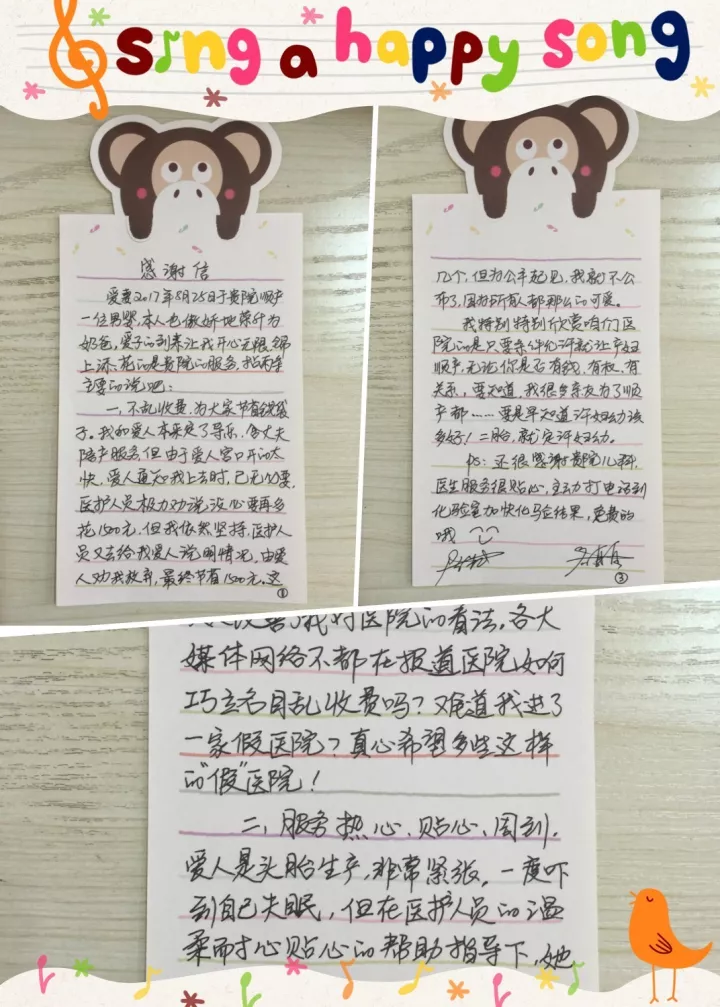 sing a happy song
感谢信
爱妻2017年8月25日于贵院顺产
一位男婴,本人也傲娇地荣升为
奶爸,爱子的到来让我开心无限,锦
上添花的是贵院的服务,拈两条
主要的说吧:
一、不乱收费,为大家节省钱袋
子。我和爱人本来定了导乐、含丈夫
陪产服务,但由于爱人宫口开的太
快,爱人通知我上去时,已无必要,
医护人员极力劝说没必要再多
花1500元,但我依然坚持,医护人
员又去给我爱人说明情况,由爱
人劝我放弃,最终节省1500元。这
①
几个,但为公平起见,我就不公
布了,因为所有人都那么的可爱。
我特别特别欣赏咱们医
院的是只要条件允许就让产妇
顺产,无论你是否有钱、有权、有
关系,要知道,我很多亲友为了顺
产都……要是早知道许妇幼该
多好!二胎,就定许妇幼。
PS:还很感谢贵院儿科,
医生服务很贴心,主动打电话到
化验室加快化验结果,免费的
哦
③
改善了我对医院的看法,各大
媒体网络不都在报道医院如何
巧立名目乱收费吗?难道我进了
一家假医院?真心希望多些这样
的“假”医院!
二、服务热心、贴心、周到。
爱人是头胎生产,非常紧张,一度吓
到自己失眠,但在医护人员的温
柔而才心贴心的帮助指导下,她